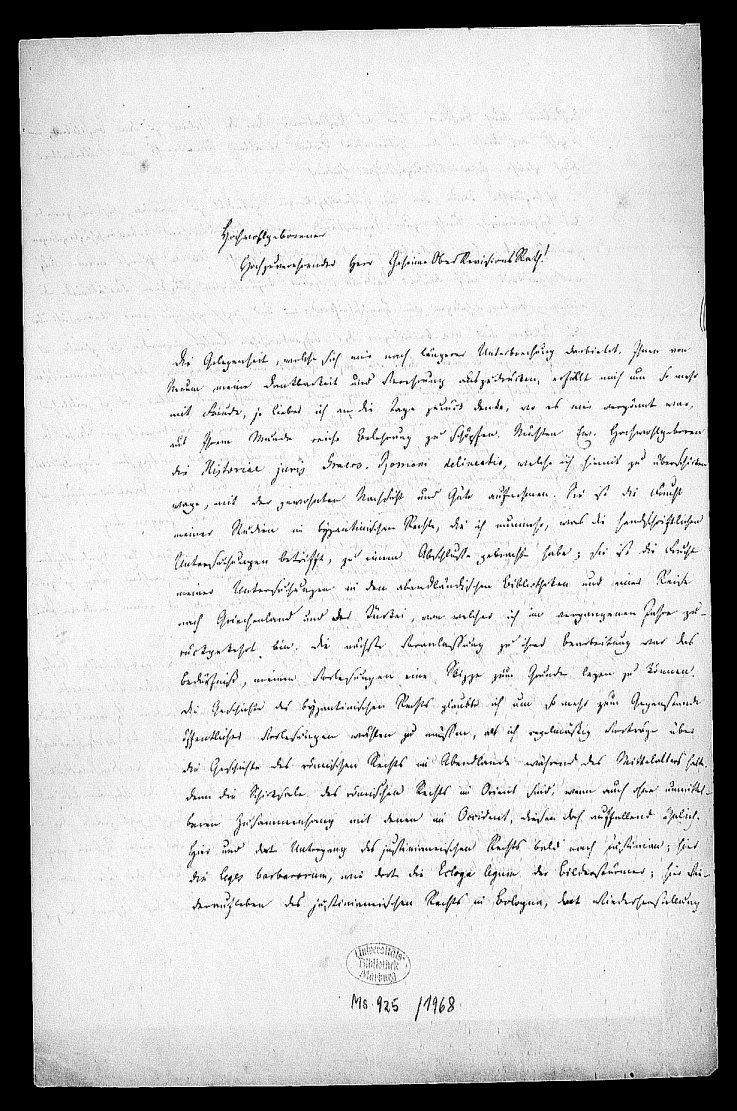 Hochwohlgeborener
Hochzuverehrender Herr Geheime Ober Revisions Rath!
Die Gelegenheit, welche sich mir nach längerer Unterbrechung darbietet, Ihnen von
Neuem meine Dankbarkeit und Verehrung auszudrücken, erfüllt mich um so mehr
mit Freude, je lieber ich an die Tage zurück denke, wo es mir vergönnt war,
aus Ihrem Munde reiche Belehrung zu schöpfen. Möchten Ew. Hochwohlgeboren
die Historiae juris Graeco-Romani delineatio, welche ich hiemit zu überschicken
wage, mit der gewohnten Nachsicht und Güte aufnehmen. Sie ist die Frucht
meiner Studien im byzantinischen Rechte, die ich nunmehr, was die handschriftlichen
Untersuchungen betrifft, zu einem Abschlusse gebracht habe; sie ist die Frucht
meiner Untersuchungen in den abendländischen Bibliotheken und einer Reise
nach Griechenland und der Türkei, von welcher ich im vergangenen Jahre zu-
rückgekehrt bin. Die nächste Veranlassung zu ihrer Bearbeitung war das
Bedürfniß, meinen Vorlesungen eine Skizze zum Grunde legen zu können.
Die Geschichte des byzantinischen Rechts glaubte ich um so mehr zum Gegenstande
öffentlicher Vorlesungen wählen zu müssen, als ich regelmäßig Vorträge über
die Geschichte des römischen Rechts im Abendlande während des Mittelalters halte,
denn die Schicksale des römischen Rechts im Orient sind, wenn auch ohne unmittel-
baren Zusammenhang mit denen im Occident, diesen doch auffallend ähnlich.
Hier und dort Untergang des justinianeischen Rechts bald nach Justinian; hier
die leges barbarorum, wie dort die Ecloga der Bilderstürmer; hier Wie-
deraufleben des justinianeischen Rechts in Bologna, dort Wiederherstellung
Universitäts-
Bibliothek
Marburg
Ms. 925 /1968